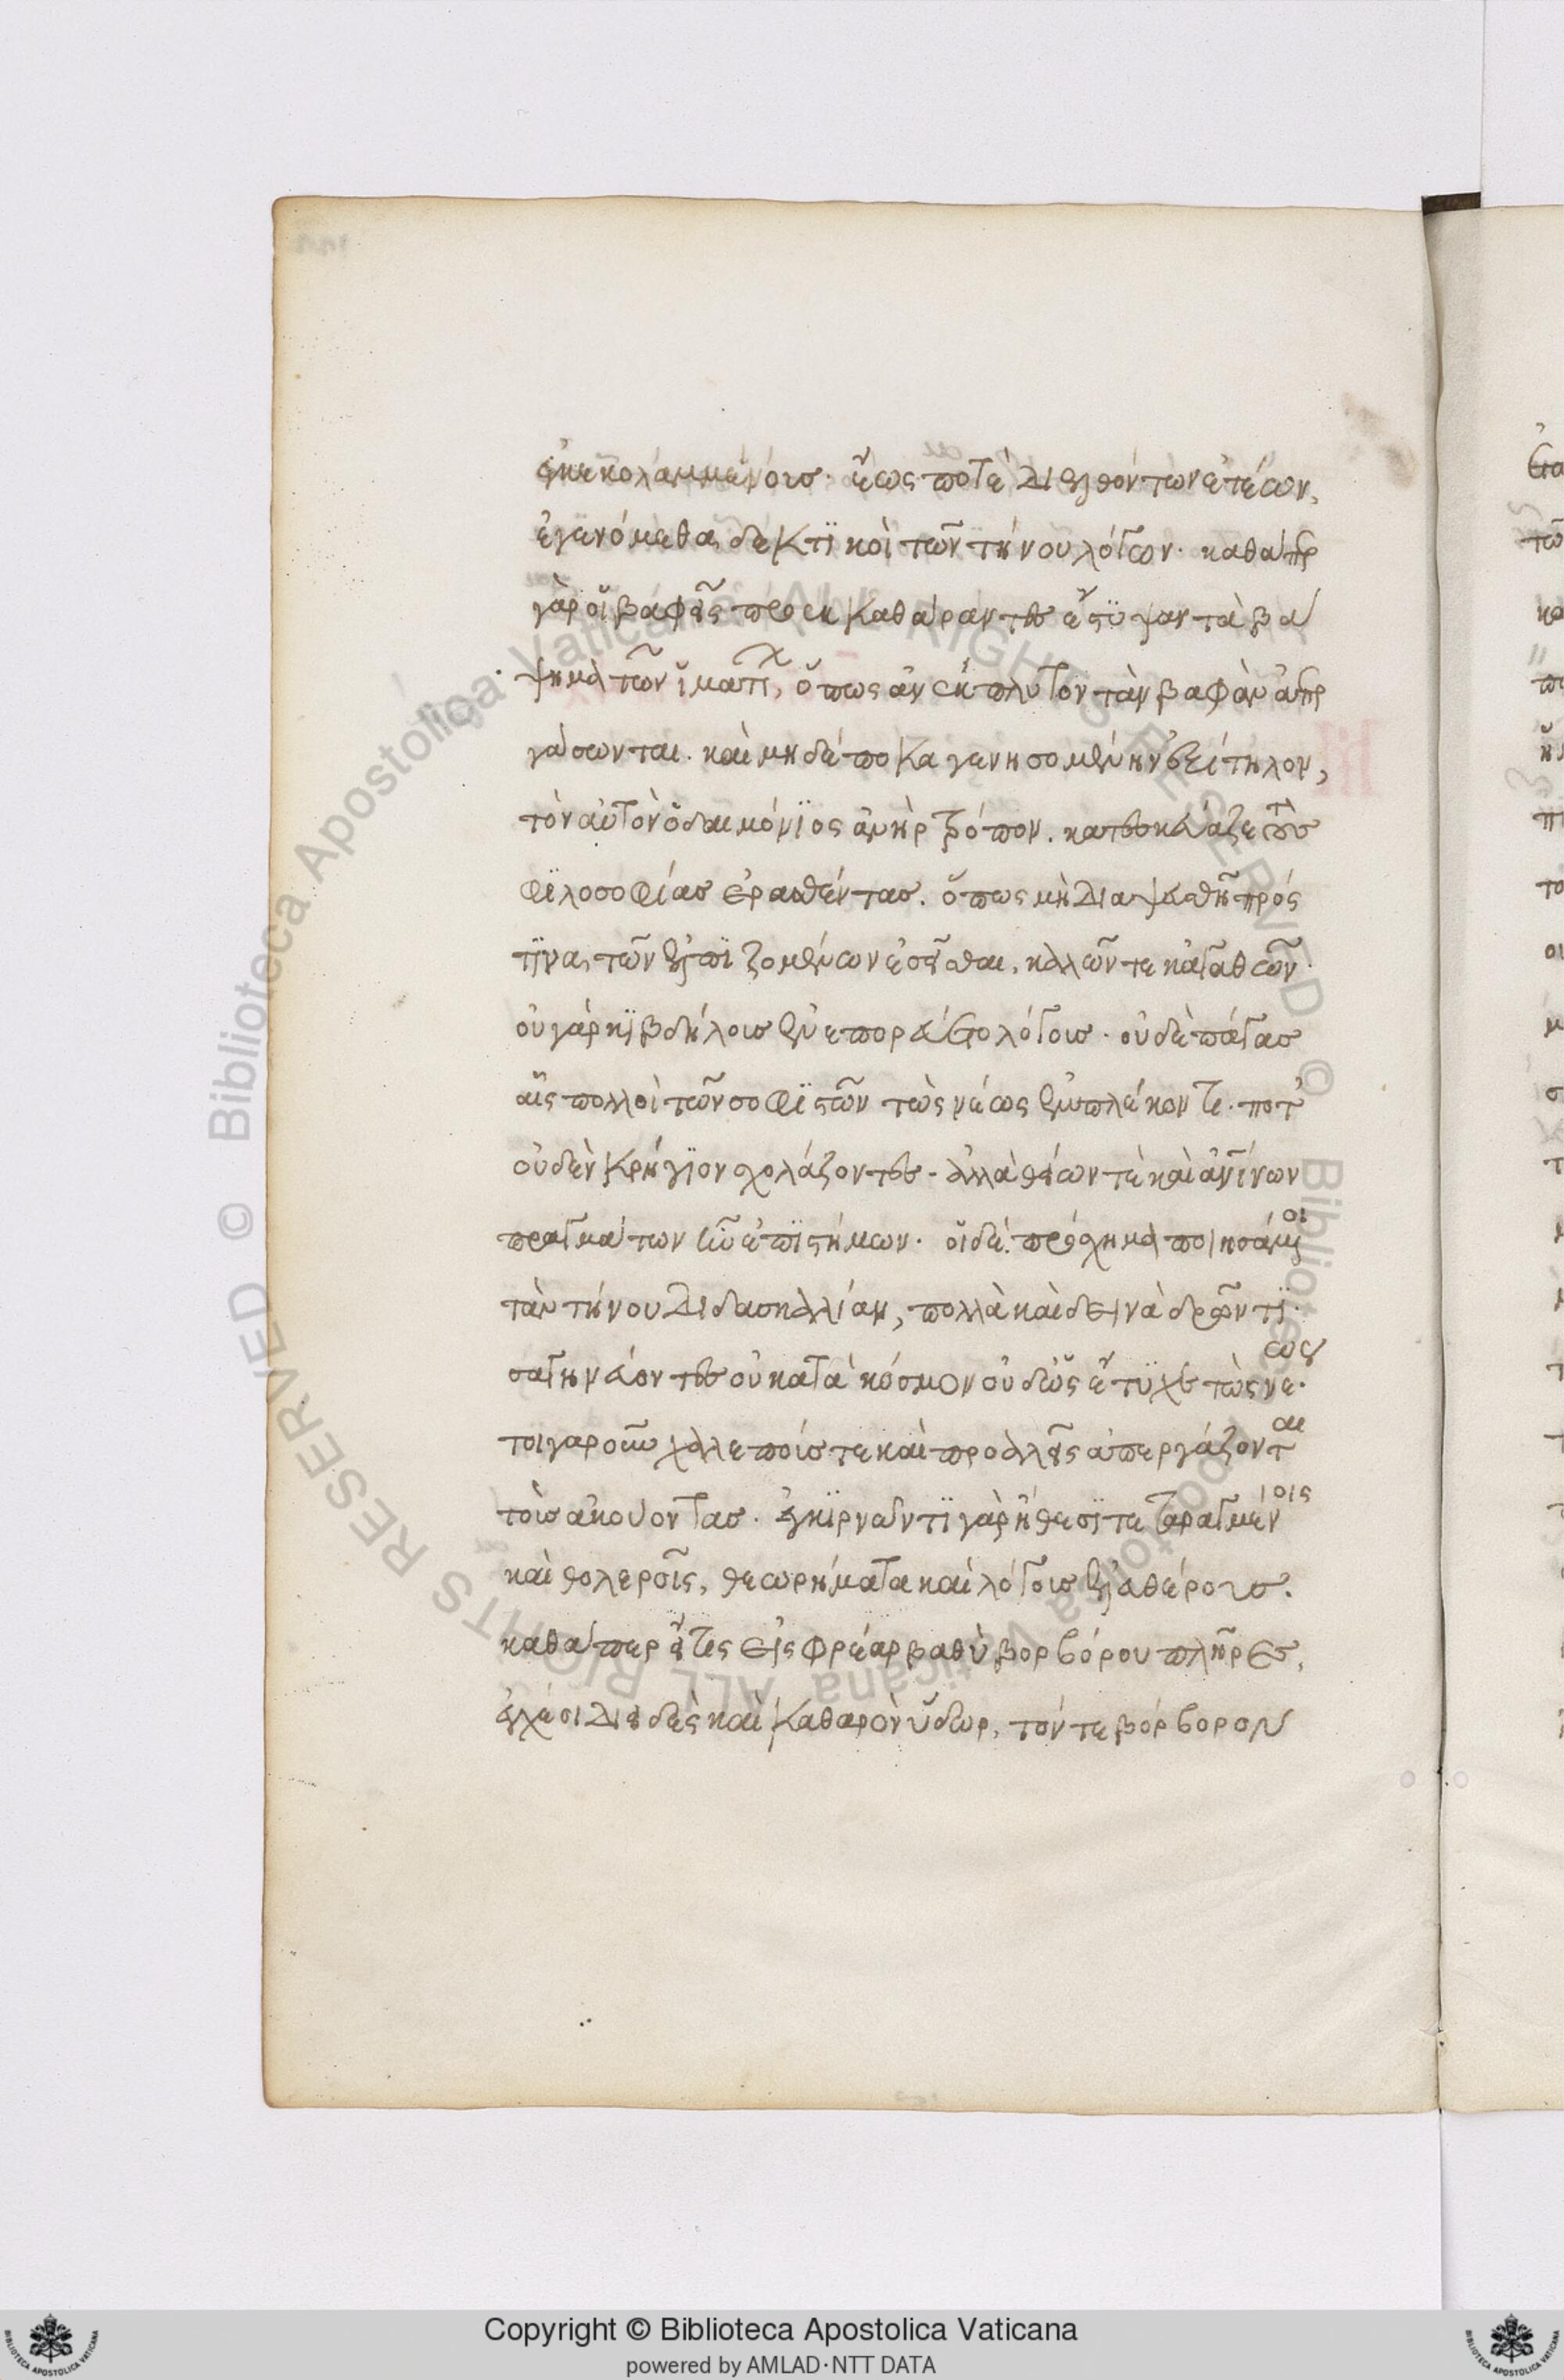 ἐγκεκολαμμένοισ· ἕως ποτὲ διελθόντων ἐτέων,
ἐγενόμεθα δεκτϊκοὶ τῶν τήνου λόγων· καθάπερ
γὰρ οἱ βαφεῖς προεκκαθάραντες ἔστυψαν τὰ βά
ψιμα τῶν ἱματί, ὅπως ἀνέκπλυτον τὰν βαφὰν ἀπερ
γάσωνται. καὶ μηδέποκα γενησομένην ἐξίτηλον,
τὸν αὐτὸν ὁ δαιμόνϊος ἀνὴρ τρόπον. κατεσκεύαζε τοὺσ
φϊλοσοφίασ ἐρασθέντασ. ὅπως μὴ διαψευσθῇ πρός
τϊνα τῶν ἐλπϊζομένων ἐσεῖσθαι, καλῶν τε κἀγαθῶν·
οὐ γὰρ κϊβδήλοισ ἐνεπορεύετο λόγοισ· οὐδὲ πάγασ
αἷς πολλοὶ τῶν σοφϊστῶν τὼς νέως ἐμπλέκοντι· ποτ'
οὐδὲν κρήγϊον σχολάζοντες· ἀλλὰ θείων τε καὶ ἀνθρωπίνων
πραγμάτων ἦν ἐπϊστήμων· οἱ δὲ πρόσχημα ποιησάμενοι
τὰν τήνου διδασκαλίαν, πολλὰ καὶ δεινὰ δρῶντϊ·
σαγηνεύοντες οὐ κατὰ κόσμον οὐδ' ὡς ἔτϋχε τὼς νέως·
τοιγαροῦν χαλεποίσ τε καὶ προαλεῖς ἀπεργάζονται
τοὶσ ἀκούοντασ· ἐγκϊρνᾶντϊ γὰρ ἤθεσϊ τεταραγμένοις
καὶ θολεροῖς, θεωρήματα καὶ λόγοισ ἐλευθέροισ.
καθάπερ εἴ τις εἰς φρέαρ βαθὺ βορβόρου πλῆρες,
ἐγχέοι διειδὲς καὶ καθαρὸν ὕδωρ, τόν τε βόρβορον